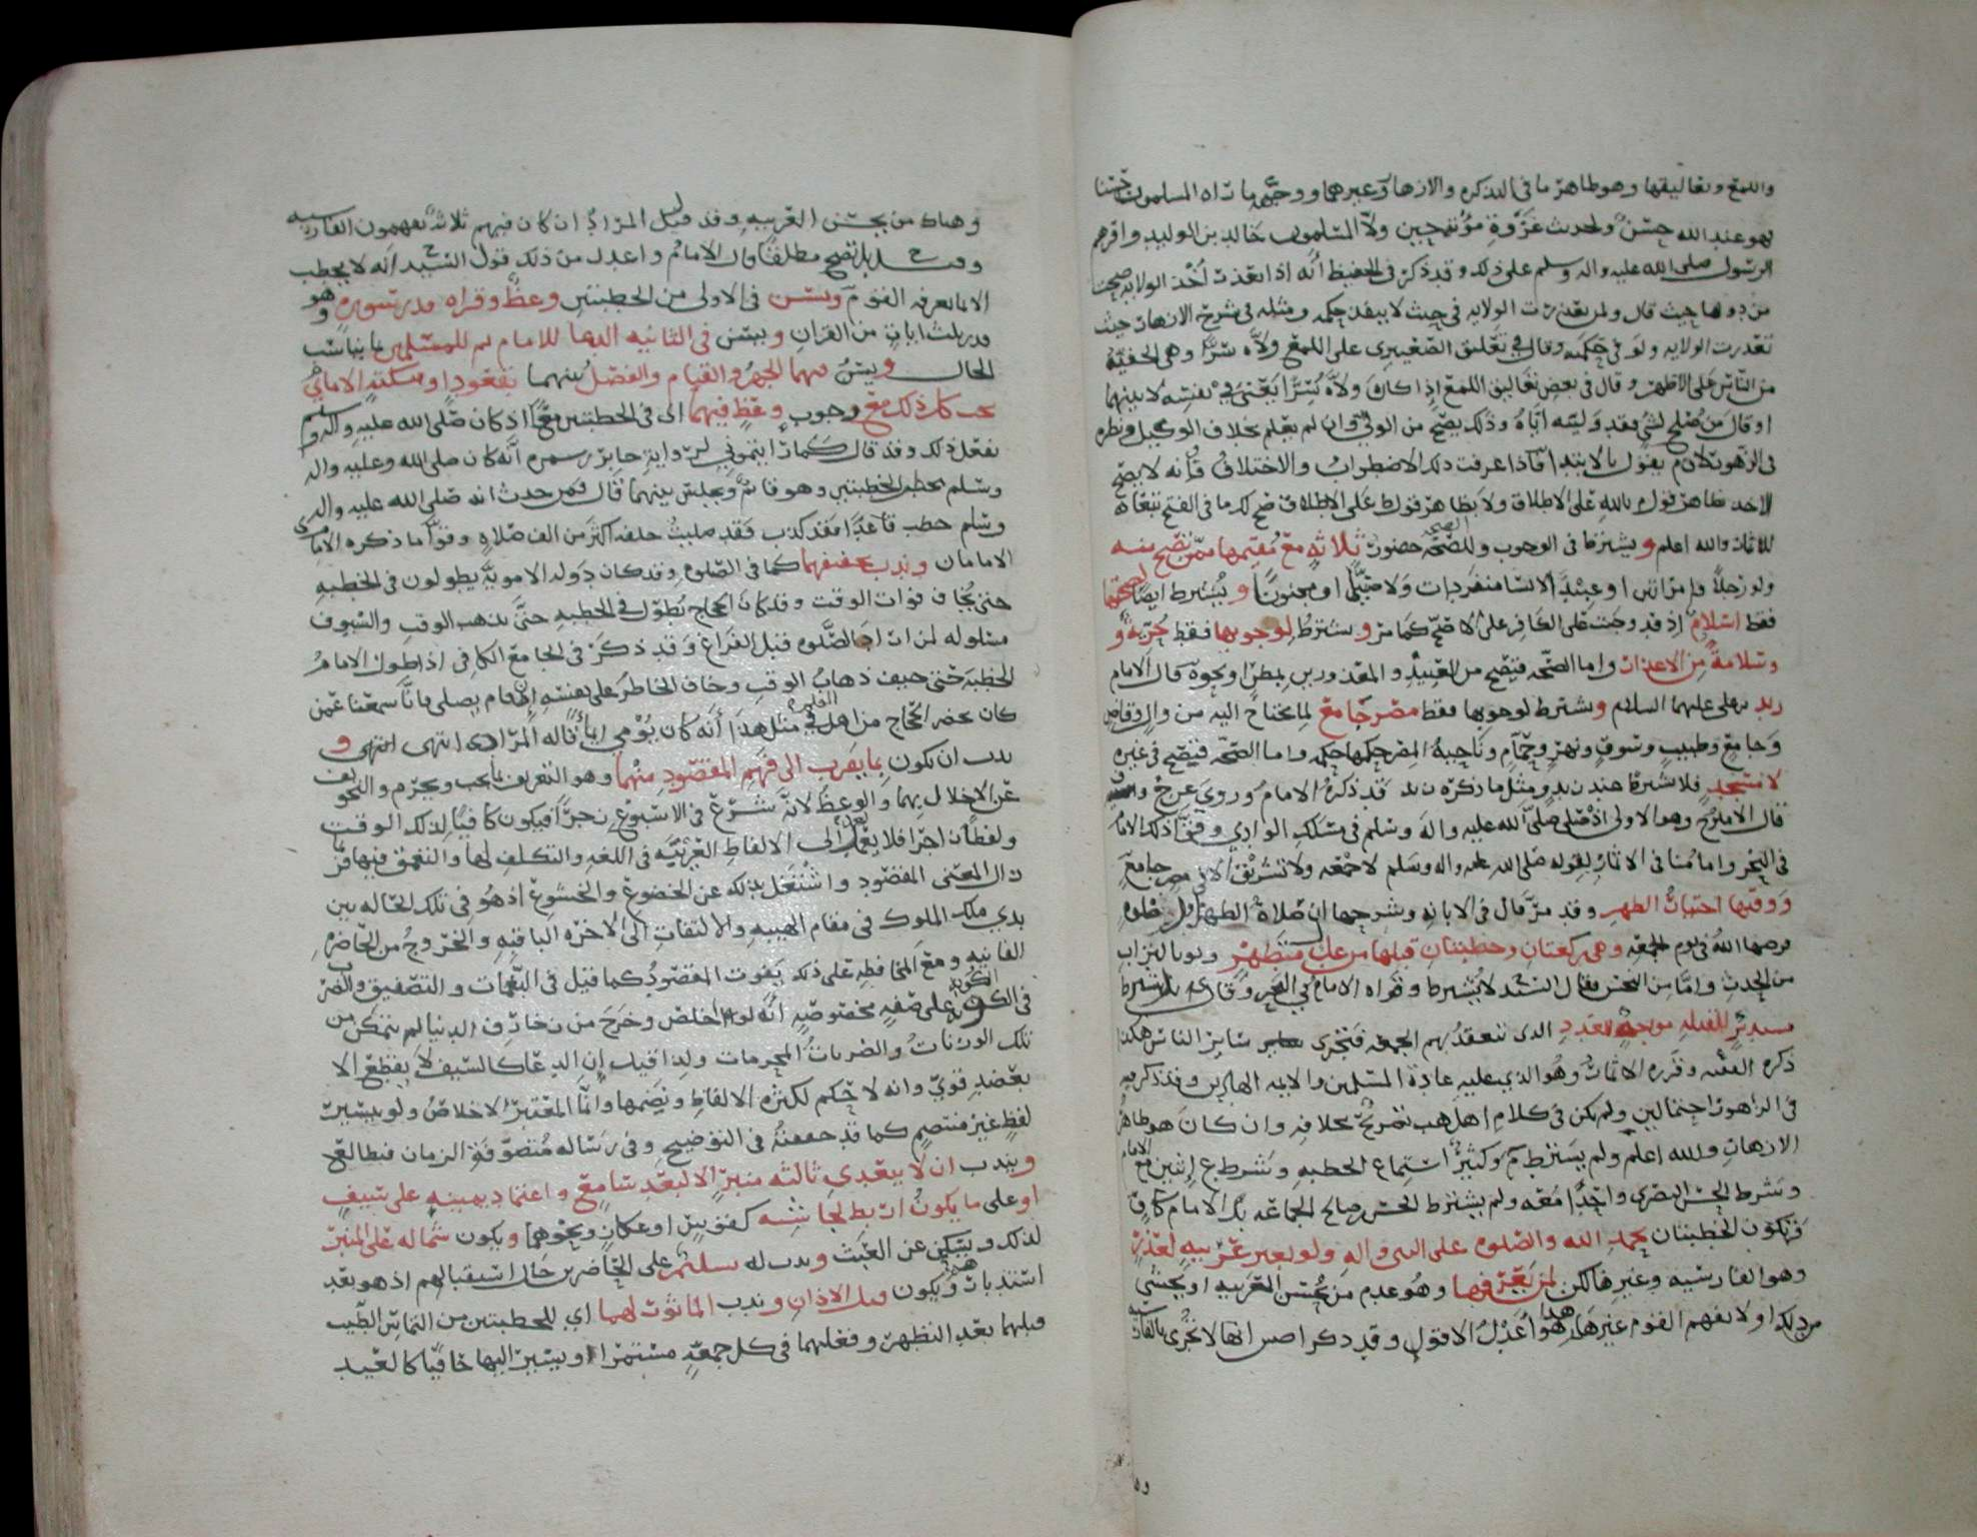 واللمع وتعاليقها وهو ظاهر ما في التذكرة والازهار وغيرهما ووجهه ما رآه المسلمون حسنا
فهو عند الله حسن ولحديث غزوة مؤتة حين ولا المسلمون خالد بن الوليد واقرهم
الرسول صلى الله عليه واله وسلم على ذلك وقد ذكر في الحفيظ أنه اذا تعذرت أخذ الولاية صحت
من دونها حيث قال ولمن تعذرت الولايه في حيث لا ينفذ حكمه ومثله في شرح الازهار حيث
تعذرت الولايه ولو في حكمه وقال في تعليق الصعيتري على اللمع ولاه سرا وهي الخفية
من الناس على الاظهر وقال في بعض تعاليق اللمع إذا كان ولاه سرا يعني في نفسه لا بينهما
او قال من صلح لشي فقد وليته اياه وذلك يصح من الولي وان لم يعلم بخلاف الوكيل ونظره
في الزهور لأنه يقول بالابتدا فاذا عرفت ذلك الاضطراب والاختلاف فإنه لا يصح
الاخذ بظاهر قول بالله على الاطلاق ولا بظاهر قول ط على الاطلاق صح لك ما في الفتح تبعا
للاثمار والله اعلم ويشترط في الوجوب وللصحة حضور ثلاثه مع مقيمها ممن تصح منه
ولو رجلا وامراتين او عبيدا لا النسا منفردات ولا صبيا او مجنونا ويشترط ايضا لصحتها
فقط اسلام إذ قد وجبت على الكافر على الاصح كما مر ويشترط لوجوبها فقط حرية و
وسلامة من الاعذار واما الصحه فتصح من العبيد والمعذورين بمطر او نحوه قال الامام
زيد بن علي عليهما السلام ويشترط لوجوبها فقط مصر جامع لما يحتاج اليه من وال وقاض
وجامع وطبيب وسوق ونهر وحمام وناحية المصر حكمها حكمه واما الصحه فتصح في غيره
لا مسجد فلا يشترط عندنا بل ومثل ما ذكره قد ذكره الامام وروي عن ح
قال الامام ح وهو الاولى اذ صلى صلى الله عليه واله وسلم في مسلك الوادي وقوا ذلك الامام
في البحر واما هنا في الاثمار لقوله صلى الله عليه واله وسلم لا جمعه ولا تشريق الا في مصر جامع
ووقتها اختيار الظهر وقد مر قال في الابانه وشرحها ان صلاة الظهر قبل صلوة
فرضها الله في يوم الجمعه وهي ركعتان وخطبتان قبلها من عدل متطهر ولو بالتراب
من الحدث واما من النجس فقال السيد لا يشترط وقواه الامام في البحر وقال بل يشترط
مستدبر للقبله مواجه لعدد الذي تنعقد بهم الجمعه فتجزي سائر الناس هكذا
ذكره الفقيه وقرره الاثمار وهو الذي عليه عادة المسلمين والايمه الهادين وقد ذكر فيه
في الزهور احتمالين ولم يكن في كلام اهل المذهب تصريح بخلافه وان كان هو ظاهر
الازهار والله اعلم ولم يشترط م وكثير استماع الخطبه وشرط ع اثنين مع الامام
وشرط الحسن البصري واحدا معه ولم يشترط الحسن بن صالح الجماعه بل الامام كاف
وتكون الخطبتان بحمد الله والصلوه على النبي واله ولو بغير عربيه لعذر
وهو الفارسيه وغيرها لكن لمن يعرفها وهو عدم من يحسن العربيه او يخشى
من ذلك او لا يفهم القوم غيرها هذا هو اعدل الاقوال وقد ذكر اصش انها لا تجزي بالفارسيه
وهناك من يحسن العربيه وقد قيل المراد ان كان فيهم ثلاثة يفهمون الفارسيه
وقيل بل تصح مطلقا قال الامام واعدل من ذلك قول السيد ح انه لا يخطب
الا بما يعرفه القوم ويسن في الاولى من الخطبتين وعظ وقراه قدر سوره وهو
قدر ثلث ايات من القران ويسن في الثانيه الدعا للامام ثم للمسلمين بما يناسب
الحال ويسن فيهما الجهر والقيام والفصل بينهما بقعود او سكتة الامام
يجب كل ذلك مع وجوب وعظ فيهما اي في الخطبتين معا اذ كان صلى الله عليه وآله وسلم
يفعل ذلك وقد قال كما رايتموني لرواية جابر بن سمره أنه كان صلى الله وعليه واله
وسلم يخطب الخطبتين وهو قائم ويجلس بينهما قال فمن حدث انه صلى الله عليه واله
وسلم خطب قاعدا فقد كذب فقد صليت خلفه اكثر من الف صلاه وقوا ما ذكره الامام ى
الامامان وندب تخفيفهما كما في الصلوه وقد كان دوله الامويه يطولون في الخطبه
حتى يخاف فوات الوقت وقد كان الحجاج يطول في الخطبه حتى يذهب الوقت والسيوف
مسلوله لمن اراد الصلوه قبل الفراغ وقد ذكر في الجامع الكافي اذا طول الامام
الخطبة حتى خيف ذهاب الوقت وخاف الحاضر على نفسه إن قام يصلي فانا سمعنا عمن
كان يحضر الحجاج من اهل العلم في مثل هذا أنه كان يؤمي ايماء قاله المرادي انتهى انتهى و
ندب ان يكون بما يقرب الى فهم المقصود منهما وهو التعريف بما يجب ويحرم والتخويف
عن الاخلال بهما والوعظ لأنه شرع في الاسبوع زجرا فيكون كافيا لذلك الوقت
ولفظا زاجرا فلا يعدل إلى الالفاظ الغريبه في اللغه والتكلف لها والتعمق فيها فر
زال المعنى المقصود واشتغل بذلك عن الخضوع والخشوع اذ هو في تلك الحاله بين
يدي ملك الملوك في مقام الهيبه والالتفات الى الاخره الباقيه والخروج من الحاضره
الفانيه ومع المحافظه على ذلك يفوت المقصود كما قيل في النغمات والتصفيق والضرب
في الكوبه على صفه مخصوصه أنه لو اخلص وخرج من زخارف الدنيا لم يتمكن من
تلك الوزنات والضربات المحرمات ولذا قيل إن الدعا كالسيف لا يقطع الا
بعضد قوي وانه لا حكم لكثره الالفاظ ونضمها وانما المعتبر الاخلاص ولو بيسير
لفظ غير منتصم كما قد حققته في التوضيح وفي رسالة متصوفة الزمان فيطالع
ويندب ان لا يبعدي ثالثه منبر الا لبعد سامع واعتماد بيمينه على سيف
او على ما يكون اربط لجاشه كقوس او عكاز ونحوهما ويكون شماله على المنبر
لذلك ويسكن عن العبث وندب له سلام على الحاضرين حال استقبالهم اذ هو بعد
استدبار ويكون قبل الاذان وندب الماثور لهما اي للخطبتين من التماس الطيب
قبلهما بعد التطهر وفعلهما في كل جمعه مستمرا او يسير اليها حافيا كالعيد